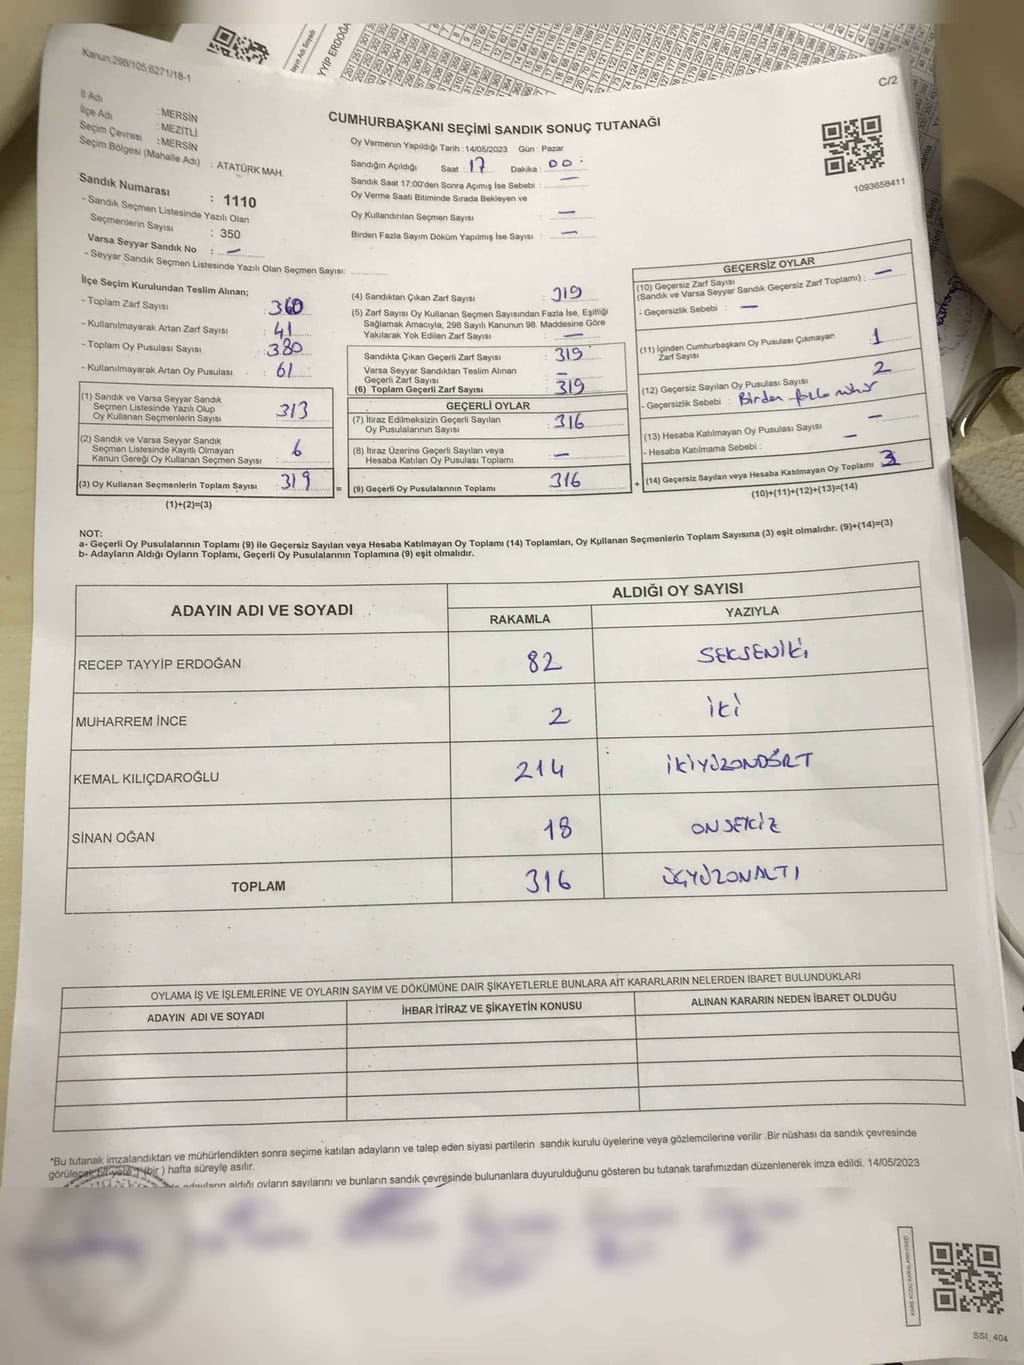 Kanun:298/105;6271/18-1
C/2
İl Adı : MERSİN
İlçe Adı : MEZİTLİ
Seçim Çevresi : MERSİN
Seçim Bölgesi (Mahalle Adı) : ATATÜRK MAH.
Sandık Numarası : 1110
- Sandık Seçmen Listesinde Yazılı Olan
Seçmenlerin Sayısı : 350
Varsa Seyyar Sandık No : —
- Seyyar Sandık Seçmen Listesinde Yazılı Olan Seçmen Sayısı:
CUMHURBAŞKANI SEÇİMİ SANDIK SONUÇ TUTANAĞI
Oy Vermenin Yapıldığı Tarih :14/05/2023 Gün : Pazar
Sandığın Açıldığı Saat : 17 Dakika : 00
Sandık Saat 17:00'den Sonra Açımış İse Sebebi : —
Oy Verme Saati Bitiminde Sırada Bekleyen ve
Oy Kullandırılan Seçmen Sayısı : —
Birden Fazla Sayım Döküm Yapılmış İse Sayısı : —
1093658411
İlçe Seçim Kurulundan Teslim Alınan;
- Toplam Zarf Sayısı : 360
- Kullanılmayarak Artan Zarf Sayısı : 41
- Toplam Oy Pusulası Sayısı : 380
- Kullanılmayarak Artan Oy Pusulası : 61
(1) Sandık ve Varsa Seyyar Sandık
Seçmen Listesinde Yazılı Olup
Oy Kullanan Seçmenlerin Sayısı : 313
(2) Sandık ve Varsa Seyyar Sandık
Seçmen Listesinde Kayıtlı Olmayan
Kanun Gereği Oy Kullanan Seçmen Sayısı : 6
(3) Oy Kullanan Seçmenlerin Toplam Sayısı : 319
(1)+(2)=(3)
(4) Sandıktan Çıkan Zarf Sayısı : 319
(5) Zarf Sayısı Oy Kullanan Seçmen Sayısından Fazla İse, Eşitliği
Sağlamak Amacıyla; 298 Sayılı Kanunun 98. Maddesine Göre
Yakılarak Yok Edilen Zarf Sayısı : —
Sandıkta Çıkan Geçerli Zarf Sayısı : 319
Varsa Seyyar Sandıktan Teslim Alınan
Geçerli Zarf Sayısı : —
(6) Toplam Geçerli Zarf Sayısı : 319
GEÇERLİ OYLAR
(7) İtiraz Edilmeksizin Geçerli Sayılan
Oy Pusulalarının Sayısı : 316
(8) İtiraz Üzerine Geçerli Sayılan veya
Hesaba Katılan Oy Pusulası Toplamı : —
=
(9) Geçerli Oy Pusulalarının Toplamı : 316
GEÇERSİZ OYLAR
(10) Geçersiz Zarf Sayısı
(Sandık ve Varsa Seyyar Sandık Geçersiz Zarf Toplamı) : —
- Geçersizlik Sebebi : —
(11) İçinden Cumhurbaşkanı Oy Pusulası Çıkmayan
Zarf Sayısı : 1
(12) Geçersiz Sayılan Oy Pusulası Sayısı : 2
- Geçersizlik Sebebi : Birden fazla mühür
(13) Hesaba Katılmayan Oy Pusulası Sayısı : —
- Hesaba Katılmama Sebebi : —
+
(14) Geçersiz Sayılan veya Hesaba Katılmayan Oy Toplamı : 3
(10)+(11)+(12)+(13)=(14)
NOT:
a- Geçerli Oy Pusulalarının Toplamı (9) ile Geçersiz Sayılan veya Hesaba Katılmayan Oy Toplamı (14) Toplamları, Oy Kullanan Seçmenlerin Toplam Sayısına (3) eşit olmalıdır. (9)+(14)=(3)
b- Adayların Aldığı Oyların Toplamı, Geçerli Oy Pusulalarının Toplamına (9) eşit olmalıdır.
ADAYIN ADI VE SOYADI ALDIĞI OY SAYISI
RAKAMLA YAZIYLA
RECEP TAYYİP ERDOĞAN 82 SEKSENİKİ
MUHARREM İNCE 2 İKİ
KEMAL KILIÇDAROĞLU 214 İKİYÜZONDÖRT
SİNAN OĞAN 18 ONSEKİZ
TOPLAM 316 ÜÇYÜZONALTI
OYLAMA İŞ VE İŞLEMLERİNE VE OYLARIN SAYIM VE DÖKÜMÜNE DAİR ŞİKAYETLERLE BUNLARA AİT KARARLARIN NELERDEN İBARET BULUNDUKLARI
ADAYIN ADI VE SOYADI İHBAR İTİRAZ VE ŞİKAYETİN KONUSU ALINAN KARARIN NEDEN İBARET OLDUĞU
*Bu tutanak imzalandıktan ve mühürlendikten sonra seçime katılan adayların ve talep eden siyasi partilerin sandık kurulu üyelerine veya gözlemcilerine verilir .Bir nüshası da sandık çevresinde
görülecek bir yere 1 (bir ) hafta süreyle asılır.
adayların aldığı oyların sayılarını ve bunların sandık çevresinde bulunanlara duyurulduğunu gösteren bu tutanak tarafımızdan düzenlenerek imza edildi. 14/05/2023
SSİ_404